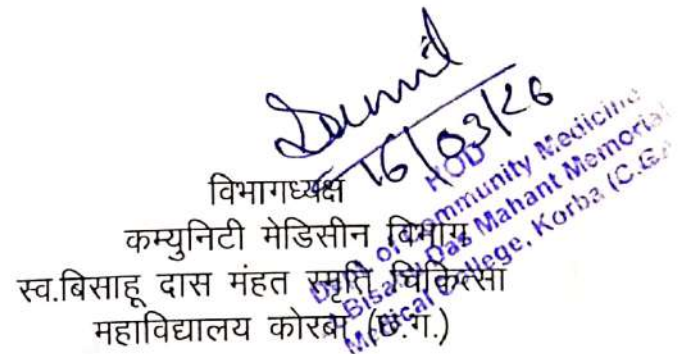 Sunil
16/03/26
विभागध्यक्ष
कम्युनिटी मेडिसीन विभाग
स्व.बिसाहू दास मंहत स्मृति चिकित्सा
महाविद्यालय कोरबा (छ.ग.)
HOD
Dept. of Community Medicine
Bisahu Das Mahant Memorial
Medical College, Korba (C.G.)